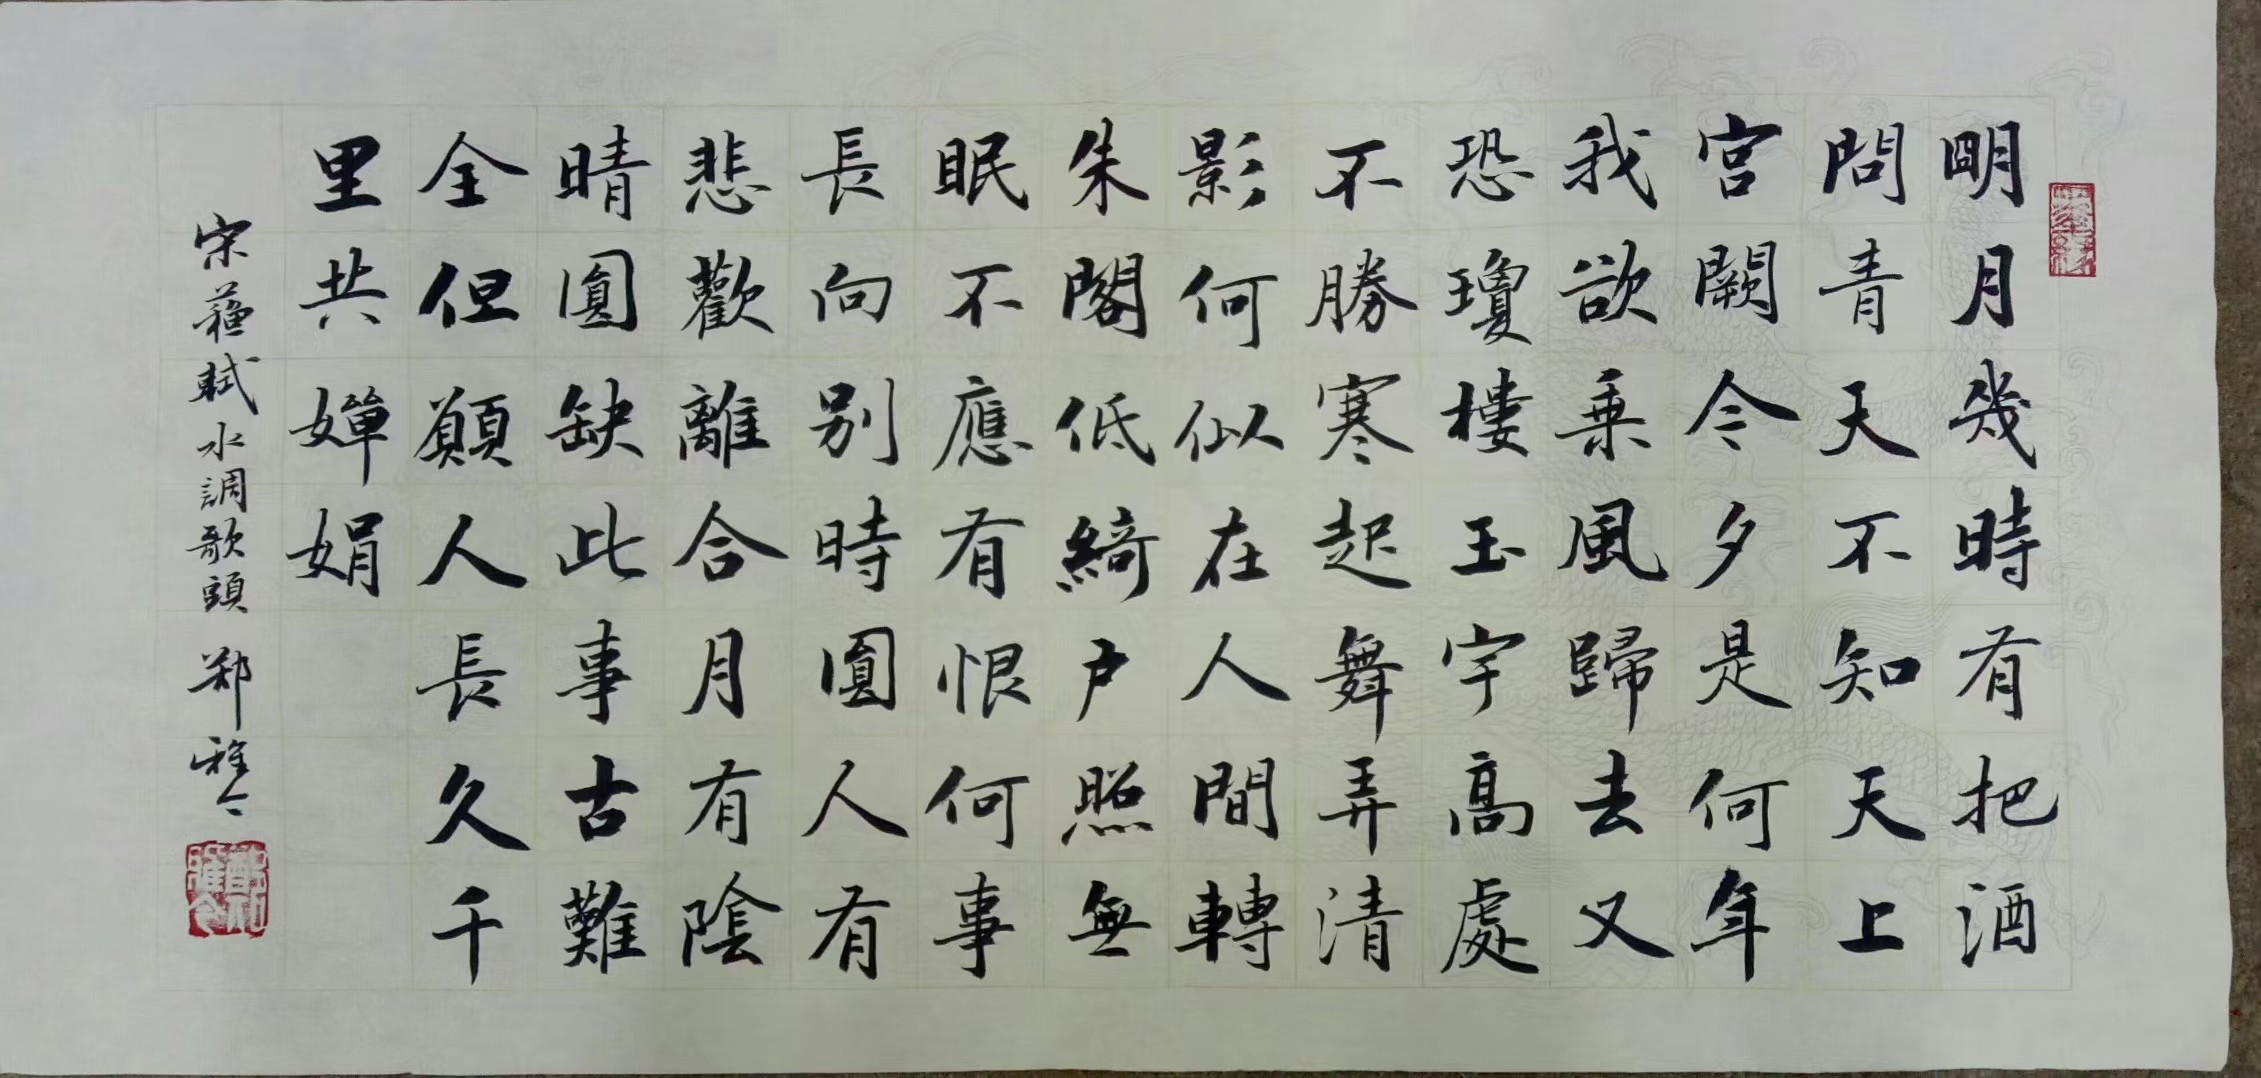 明月幾時有把酒
問青天不知天上
宫闕今夕是何年
我欲乗風歸去又
恐瓊樓玉宇高處
不勝寒起舞弄清
影何似在人間轉
朱閣低綺户照無
眠不應有恨何事
長向别時圓人有
悲歡離合月有陰
晴圓缺此事古難
全但願人長久千
里共嬋娟
宋蘇軾水調歌頭 鄭雅令